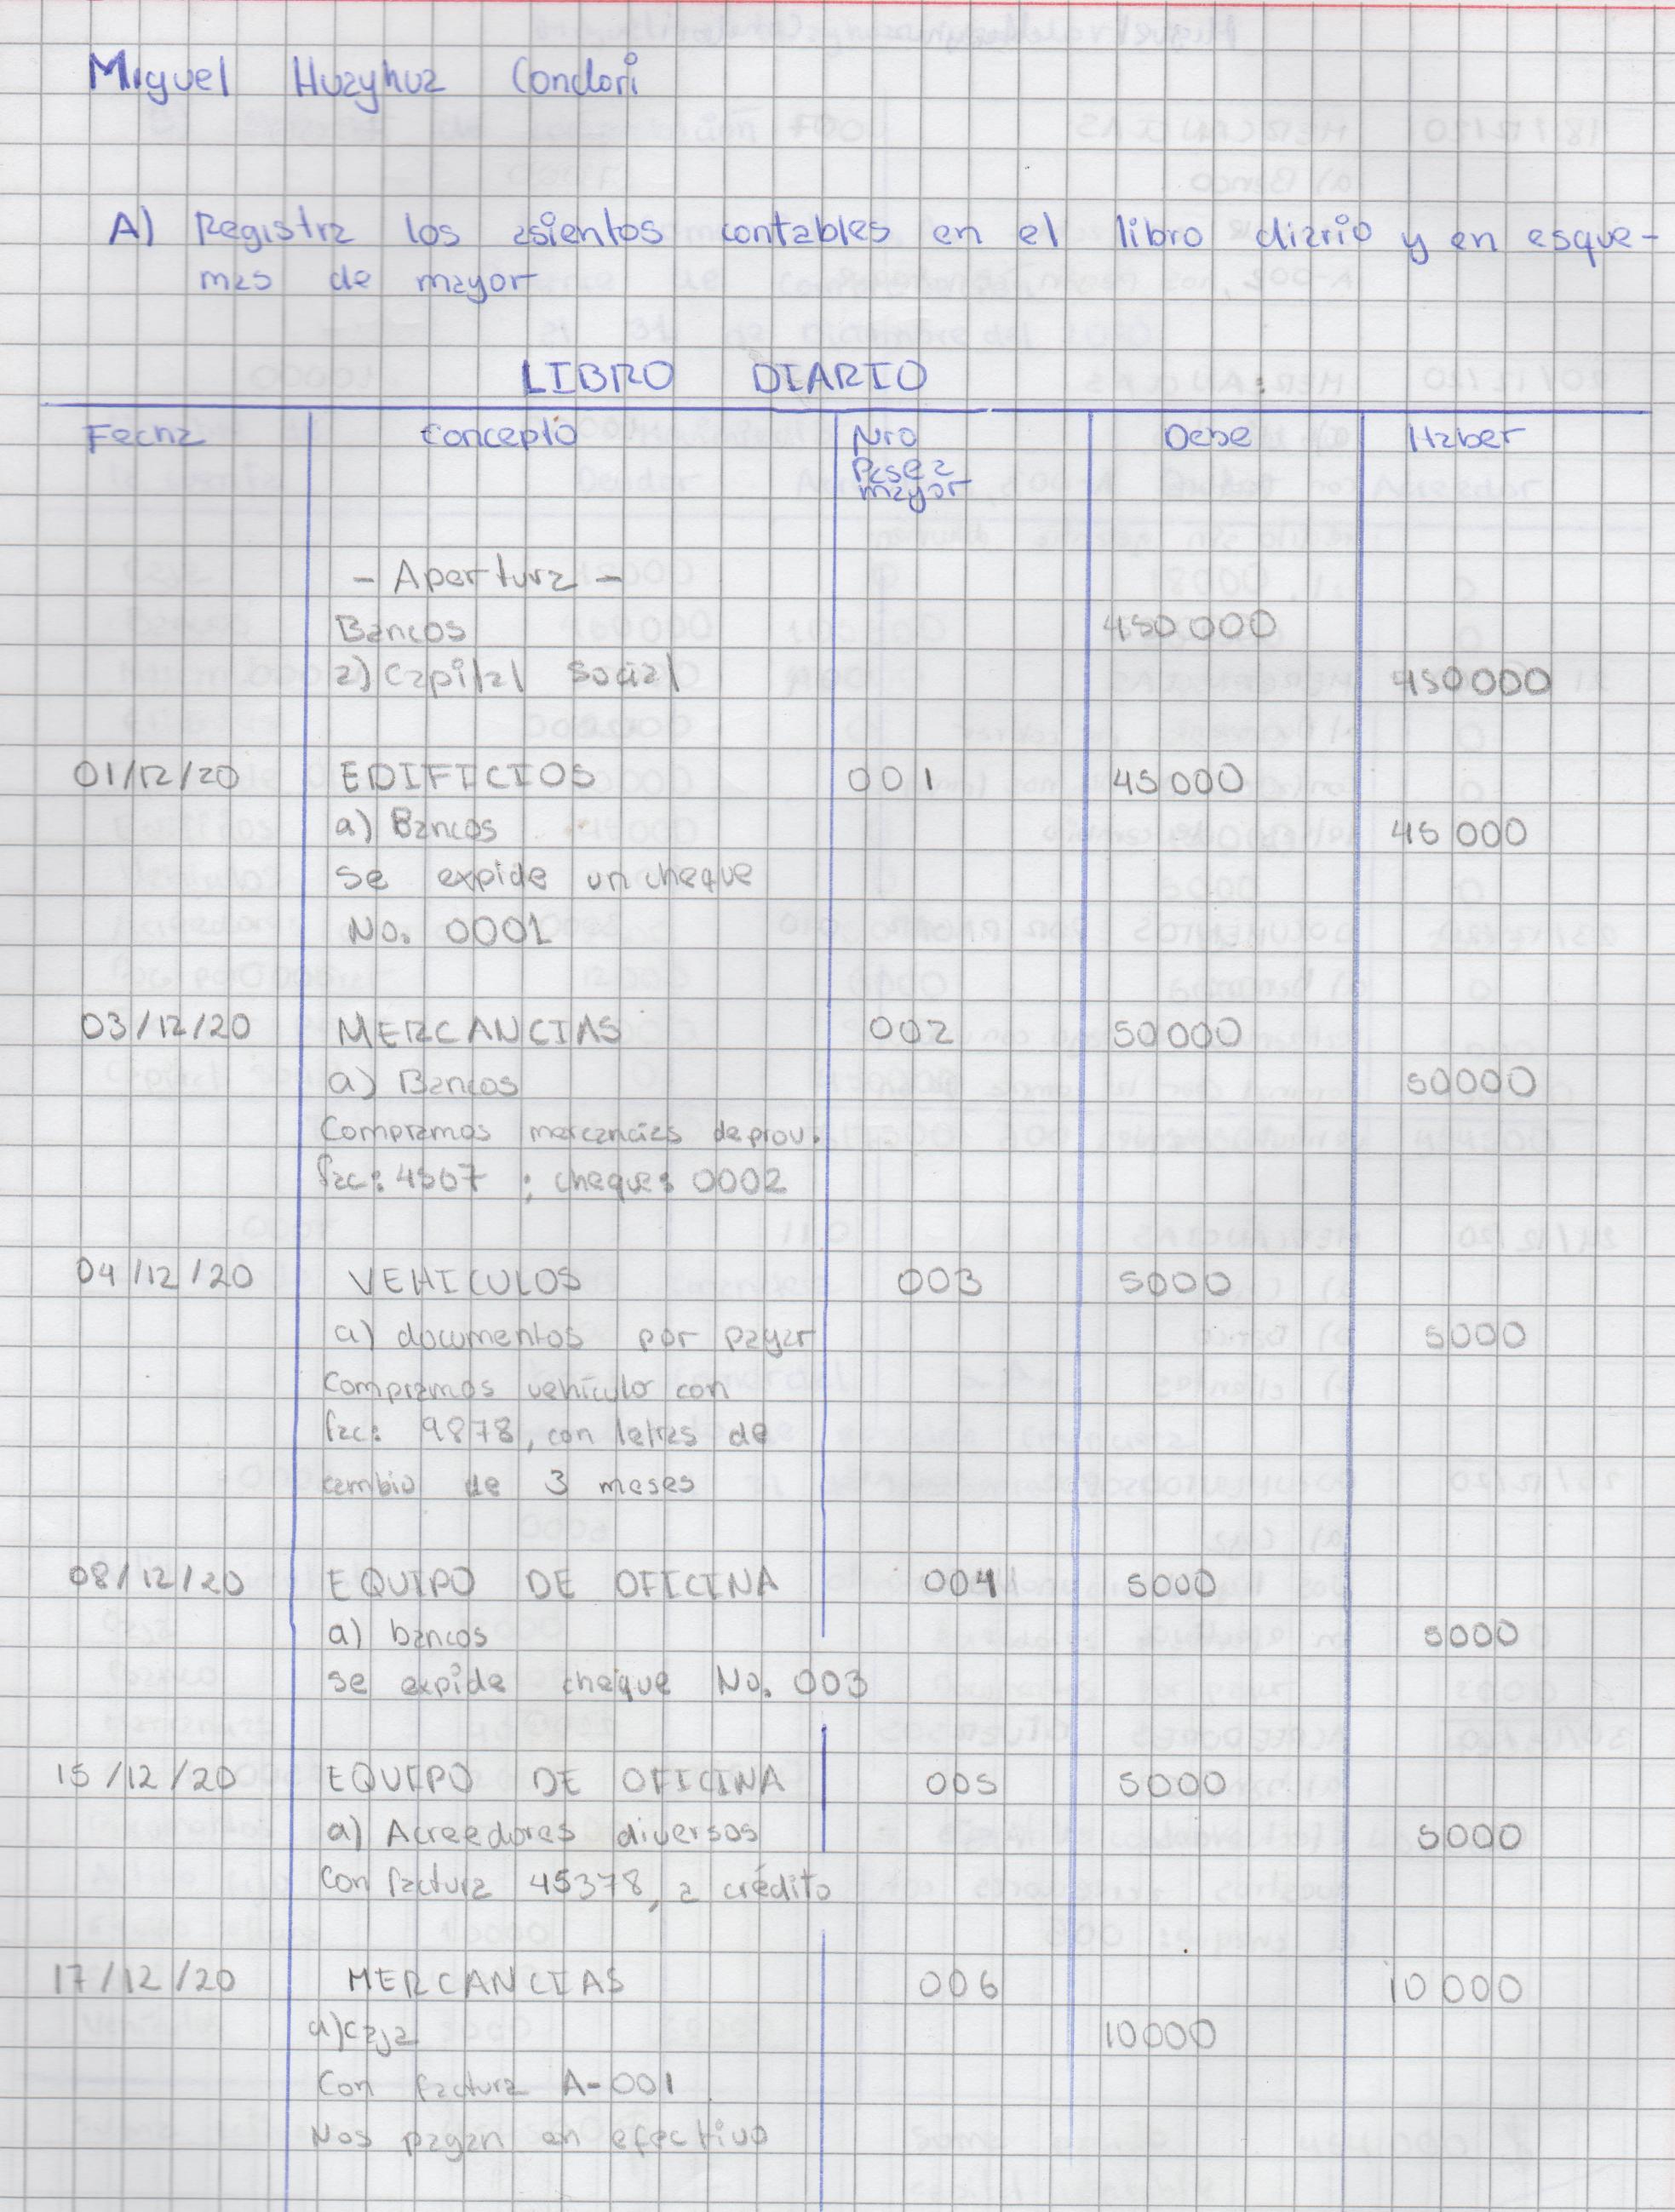 Miguel Huayhua Condori
A) Registra los asientos contables en el libro diario y en esque-
mas de mayor
LIBRO DIARIO
Fecha Concepto Nro Pase a mayor Debe Haber
- Apertura -
Bancos 450 000
a) Capital Social 450000
01/12/20 EDIFICIOS 001 45 000
a) Bancos 45 000
Se expide un cheque
No. 0001
03/12/20 MERCANCIAS 002 50000
a) Bancos 50000
Compramos mercancias de prov.
fac: 4567 ; cheque: 0002
04/12/20 VEHICULOS 003 5000
a) documentos por pagar 5000
Compramos vehículo con
fac: 9878, con letras de
cambio de 3 meses
08/12/20 EQUIPO DE OFICINA 004 5000
a) bancos 5000
se expide cheque No. 003
15/12/20 EQUIPO DE OFICINA 005 5000
a) Acreedores diversos 5000
Con factura 45378, a crédito
17/12/20 MERCANCIAS 006 10 000
a) Caja 10000
Con factura A-001
Nos pagan en efectivo